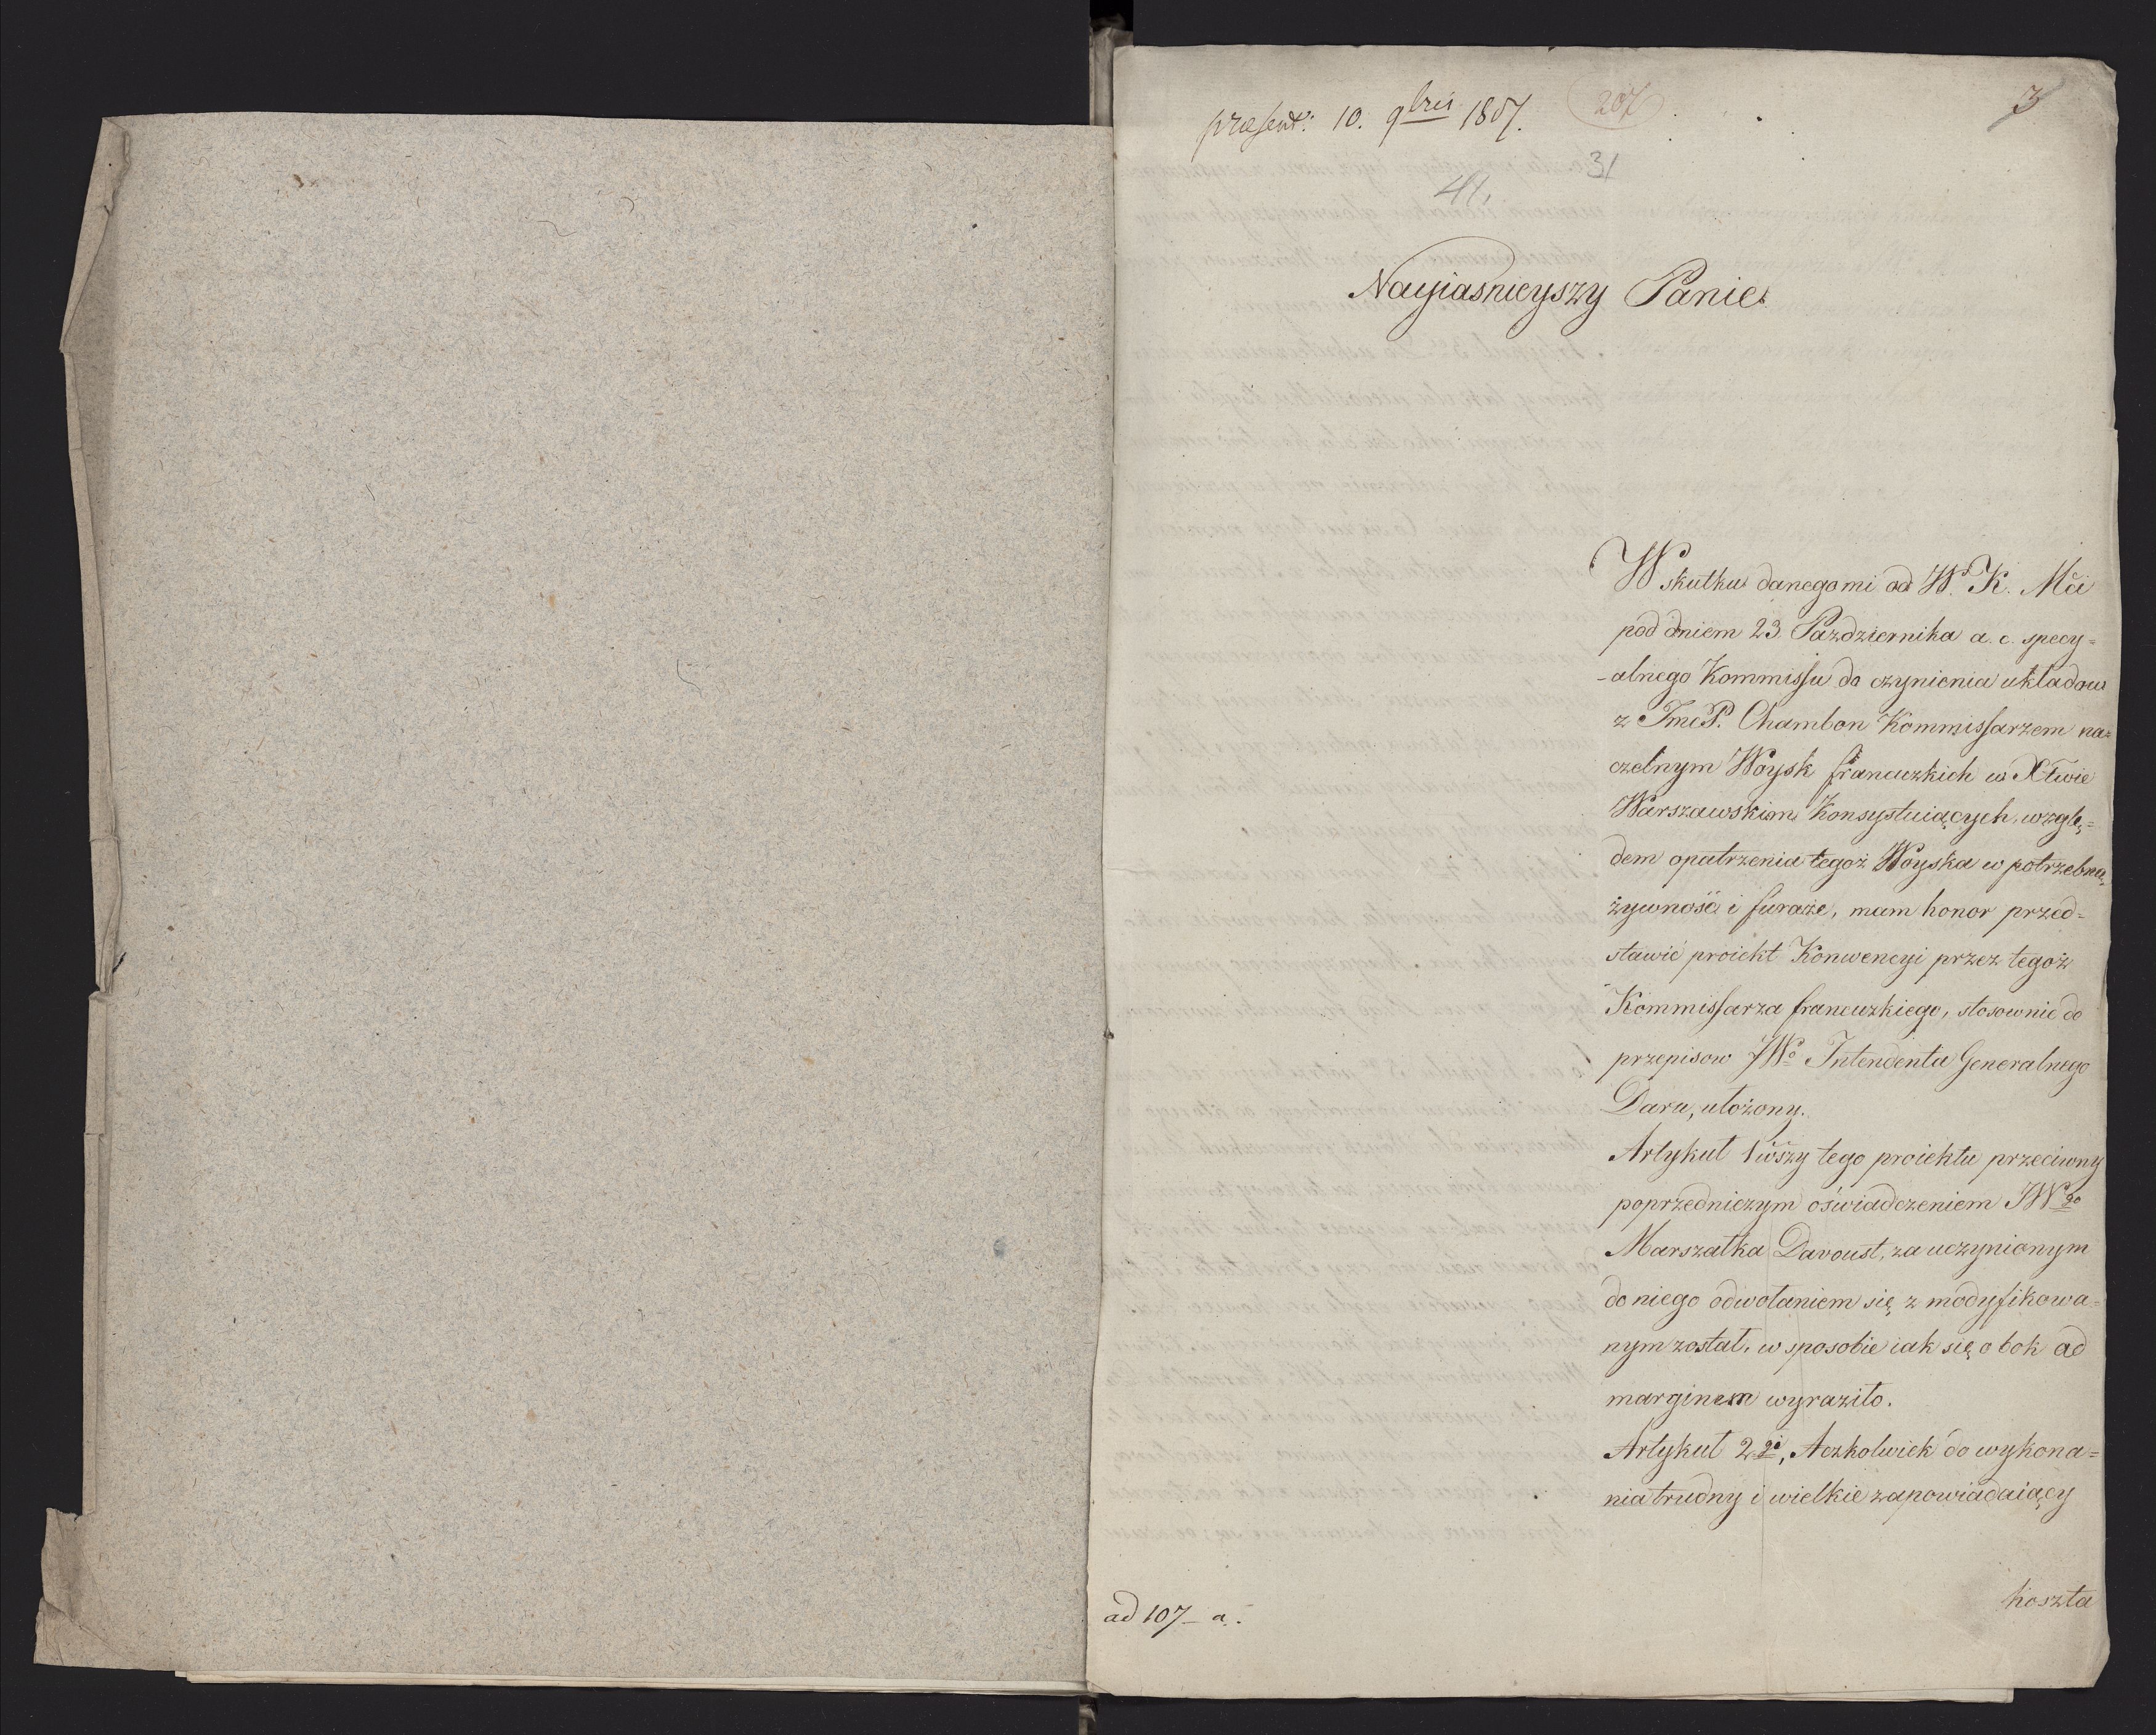 præsent: 10. 9bris 1807.
207
3
31
41.
Nayiasnieyszy Panie
W skutku danego mi od W. K. Mći
pod dniem 23 Pazdziernika a. c. specy=
-alnego Kommissu do czynienia układow
z JmcP. Chambon Kommissarzem na=
czelnym Woysk francuzkich w Xtwie
Warszawskim Konsystuiących, wzglę=
dem opatrzenia tegoż Woyska w potrzebną
żywność i furaże, mam honor przed=
stawić proiekt Konwencyi przez tegoż
Kommissarza francuzkiego, stosownie do
przepisow JWo Intendenta Generalnego
Daru, ułożony.
Artykuł 1wszy tego proiektu przeciwny
poprzedniczym oświadczeniem JWgo
Marszałka Davoust, za uczynionym
do niego odwołaniem się zmodyfikowa=
nym został, w sposobie iak się obok ad
marginem wyraziło.
Artykuł 2gi, Aczkolwiek do wykona=
nia trudny i wielkie zapowiadaiący
koszta
ad 107 - a.